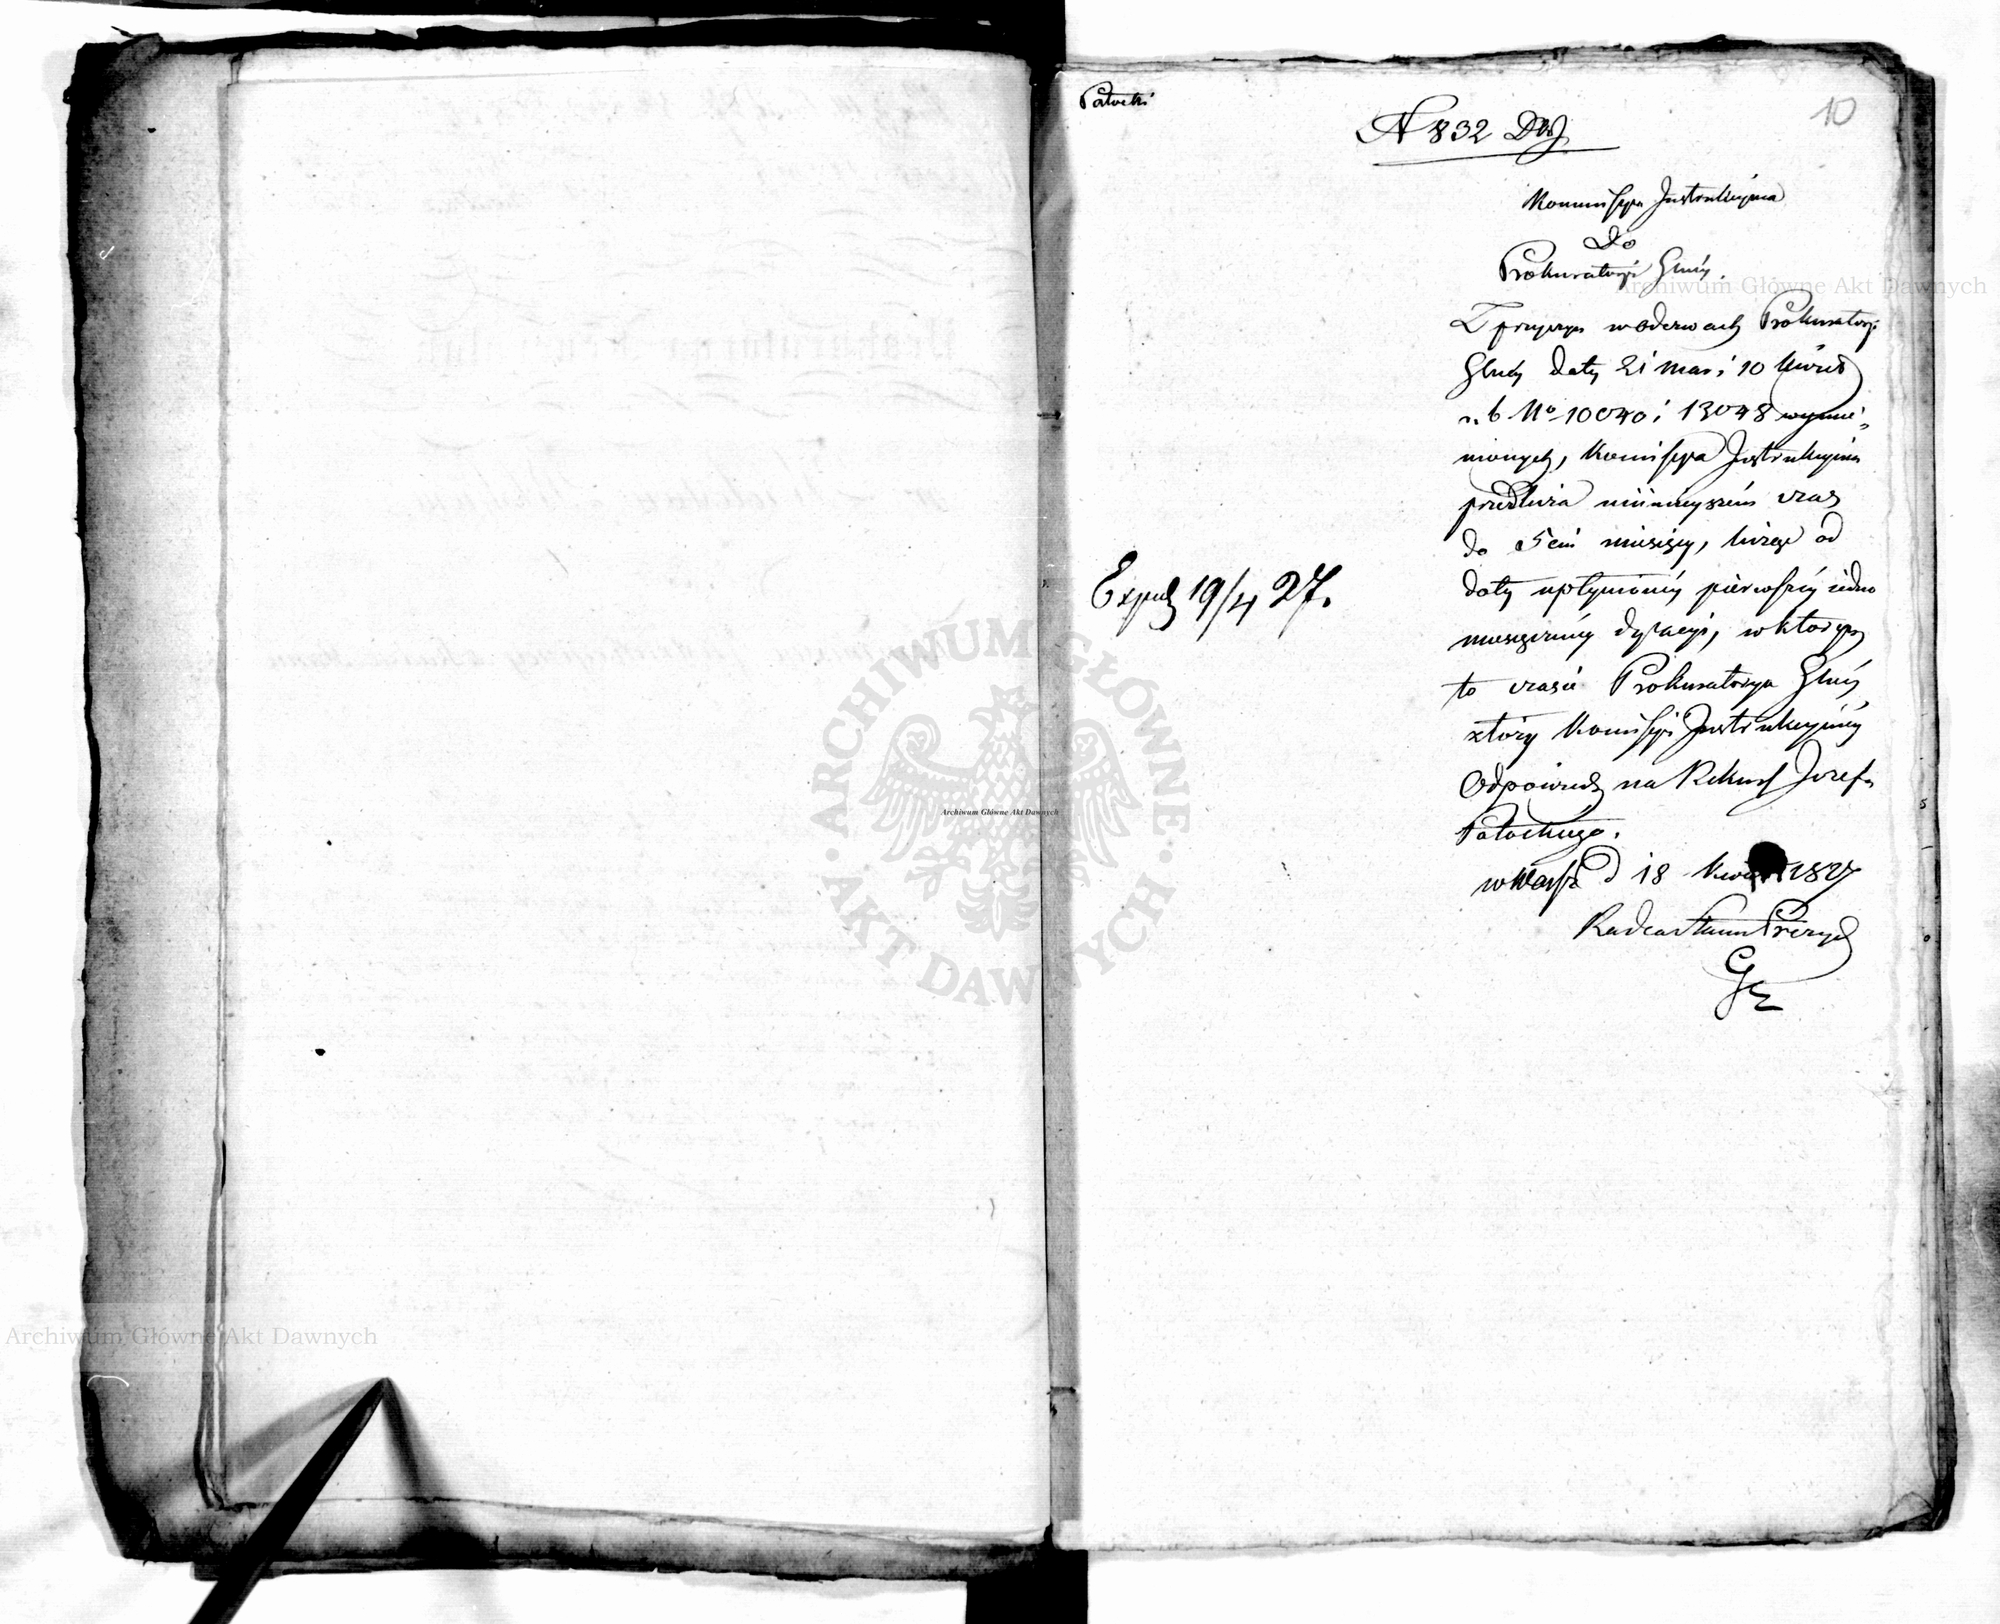 Patocki
10
N 832 
Kommissya Instrukcyina
Do
Prokuratoryi Glnéy.
Z przyczyn w Odezwach Prokuratoryi
Glnéy daty 21 mar i 10 Kwiet
r. b No 10040 i 13048 wymie-
nionych, Komissya Instrukcyina
przedłuża niinieyszém czas
do 5ciu miesięcy, licząc od
daty upłynionéy pierwszéy iedno
miesięcznéy dylacyi, w którym
to czasie Prokuratorya Glnéy
złoży Komissyi Instrukcyinéy
Odpowiedz na Rekurs Jozefa
Patockiego.
w Warsz d 18 Kwiet 1827
Radca Stanu Prezyd
Exped 19/4 27.
Archiwum Główne Akt Dawnych
Archiwum Główne Akt Dawnych
Archiwum Główne Akt Dawnych
ARCHIWUM GŁÓWNE AKT DAWNYCH